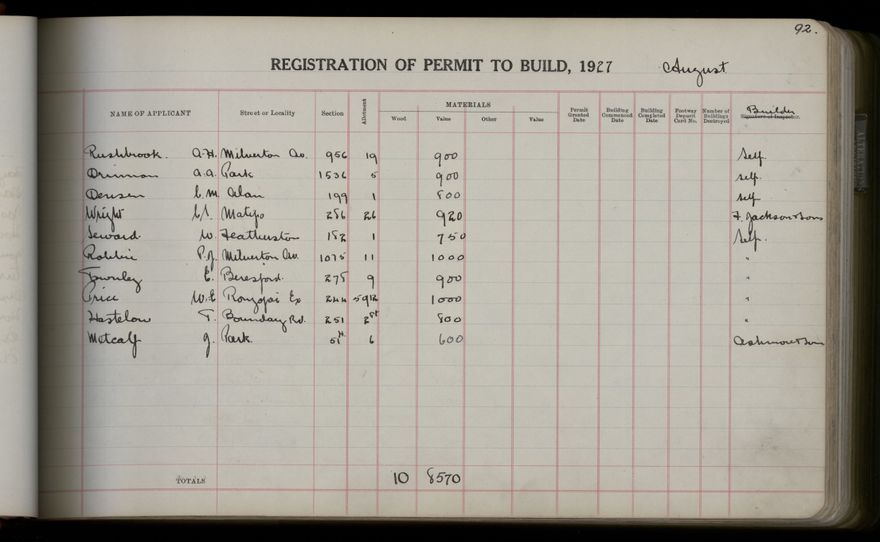 92.
REGISTRATION OF PERMIT TO BUILD, 1927 August
NAME OF APPLICANT Street or Locality Section Allotment MATERIALS Wood Value Other Value Permit Granted Date Building Commenced Date Building Completed Date Footway Deposit Card No. Number of Buildings Destroyed Signature of Inspector. Builder
Rushbrook. A.H. Milverton Av. 956 19 900 Self.
Drinnan A.A. Park 1536 5 900 Self.
Densen C.M. Alan 199 1 800 Self
Wright Matipo 286 26 920 F. Jackson & Sons
Seward W. Featherston 182 1 750 Self.
P.J. Milverton Av. 1075 11 1000 "
Townley E. Beresford. 275 9 900 "
Price W.E. Rongopai Ex 244 1000 "
Hastelow T. Boundary Rd. 251 800 "
Metcalf J. Park. 6 600
TOTALS 10 8570
ALTERATIONS